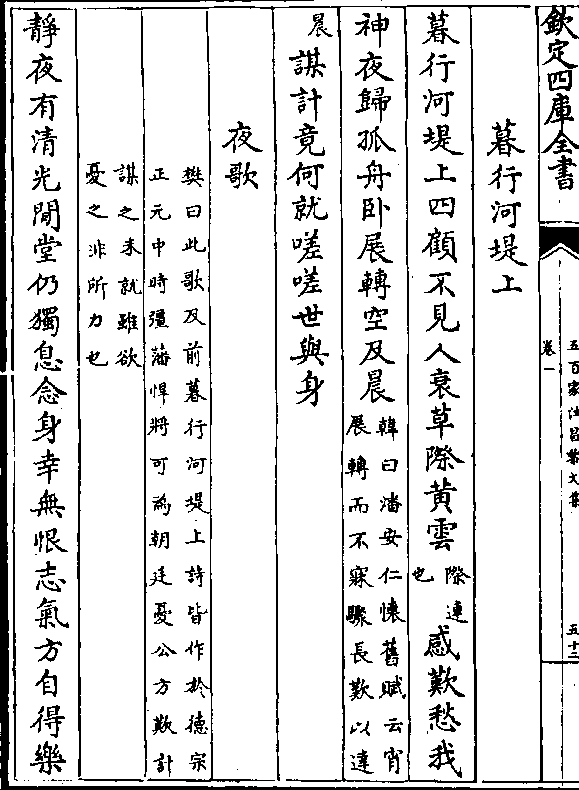 欽定四庫全書
五百家注昌黎文集
卷一
五十三
暮行河堤上
暮行河堤上四顧不見人衰草際黃雲際連
也感歎愁我
神夜歸孤舟卧展轉空及晨韓曰潘安仁懷舊賦云宵
展轉而不寐驟長歎以達
晨謀計竟何就嗟嗟世與身
夜歌樊曰此歌及前暮行河堤上詩皆作於德宗
正元中時彊藩悍將可為朝廷憂公方歎計
謀之未就雖欲
憂之非所力也
靜夜有清光閒堂仍獨息念身幸無恨志氣方自得樂